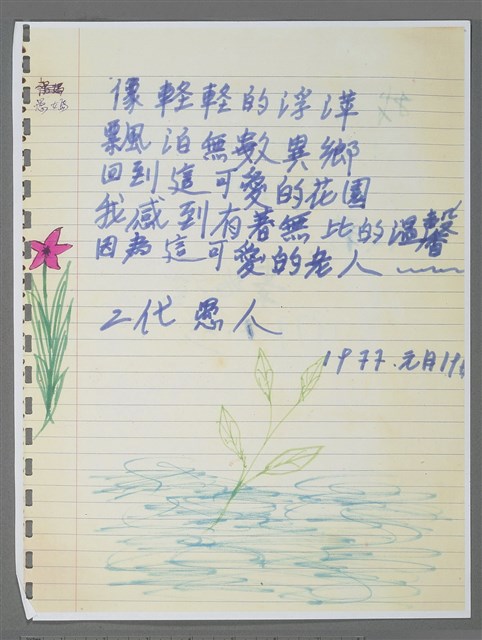 像輕輕的浮萍
飄泊無數異鄉
回到這可愛的花園
我感到有着無比的溫馨
因為這可愛的老人
二代愚人
1977.元月19